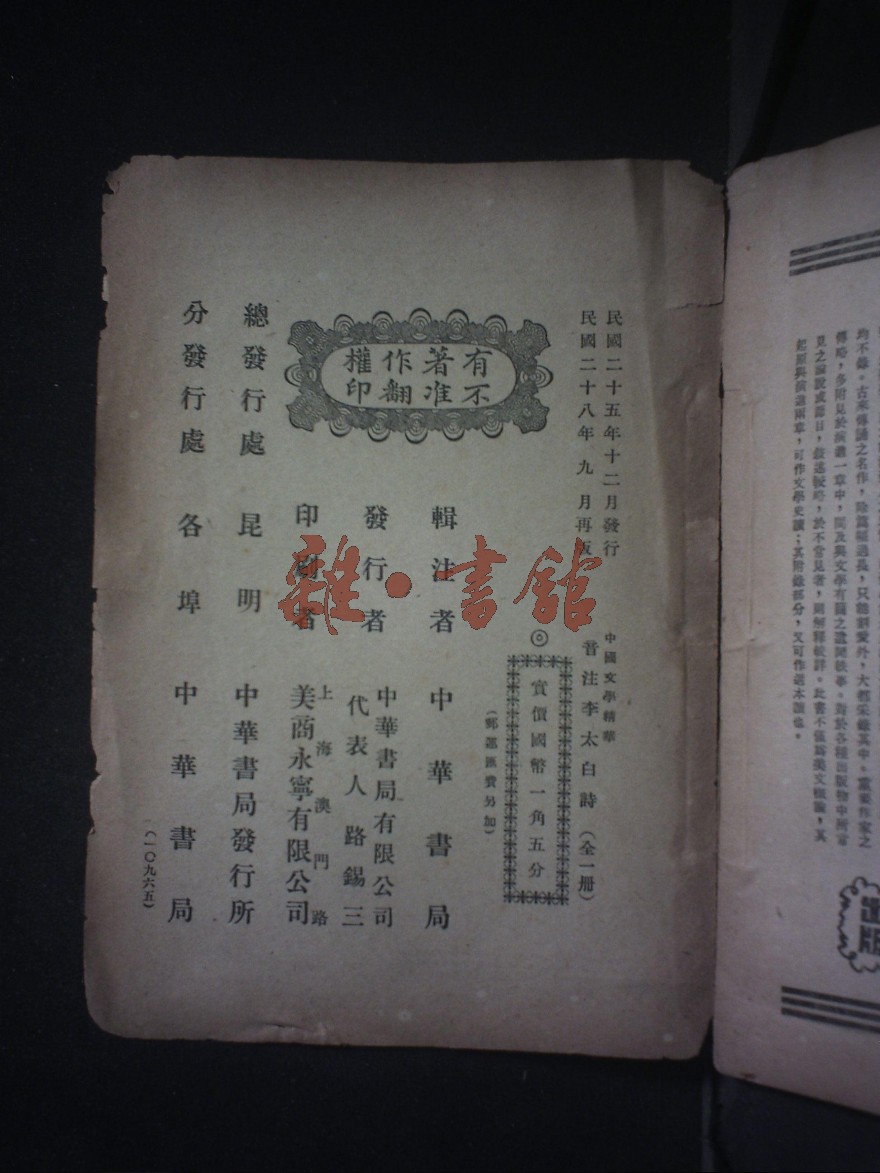 民國二十五年十二月發行
民國二十八年九月再版
中國文學精華
音注李太白詩（全一冊）
◎實價國幣一角五分
（郵運匯費另加）
有著作權
不准翻印
輯注者 中華書局
發行者 中華書局有限公司
代表人 路錫三
印刷者 上海澳門路
美商永寧有限公司
總發行處 昆明 中華書局發行所
分發行處 各埠 中華書局
（一〇九六五）
雜·書館
均不錄。古來傳誦之名作，除篇幅過長，只能割愛外，大都采錄其中。重要作家之
傳略，多附見於演進一章中，間及與文學有關之遺聞軼事。對於各種出版物中所常
見之論說或節目，敍述較略，於不常見者，則解釋較詳。此書不僅為美文概論，其
起原與演進兩章，可作文學史讀；其附錄部分，又可作選本讀也。
出版